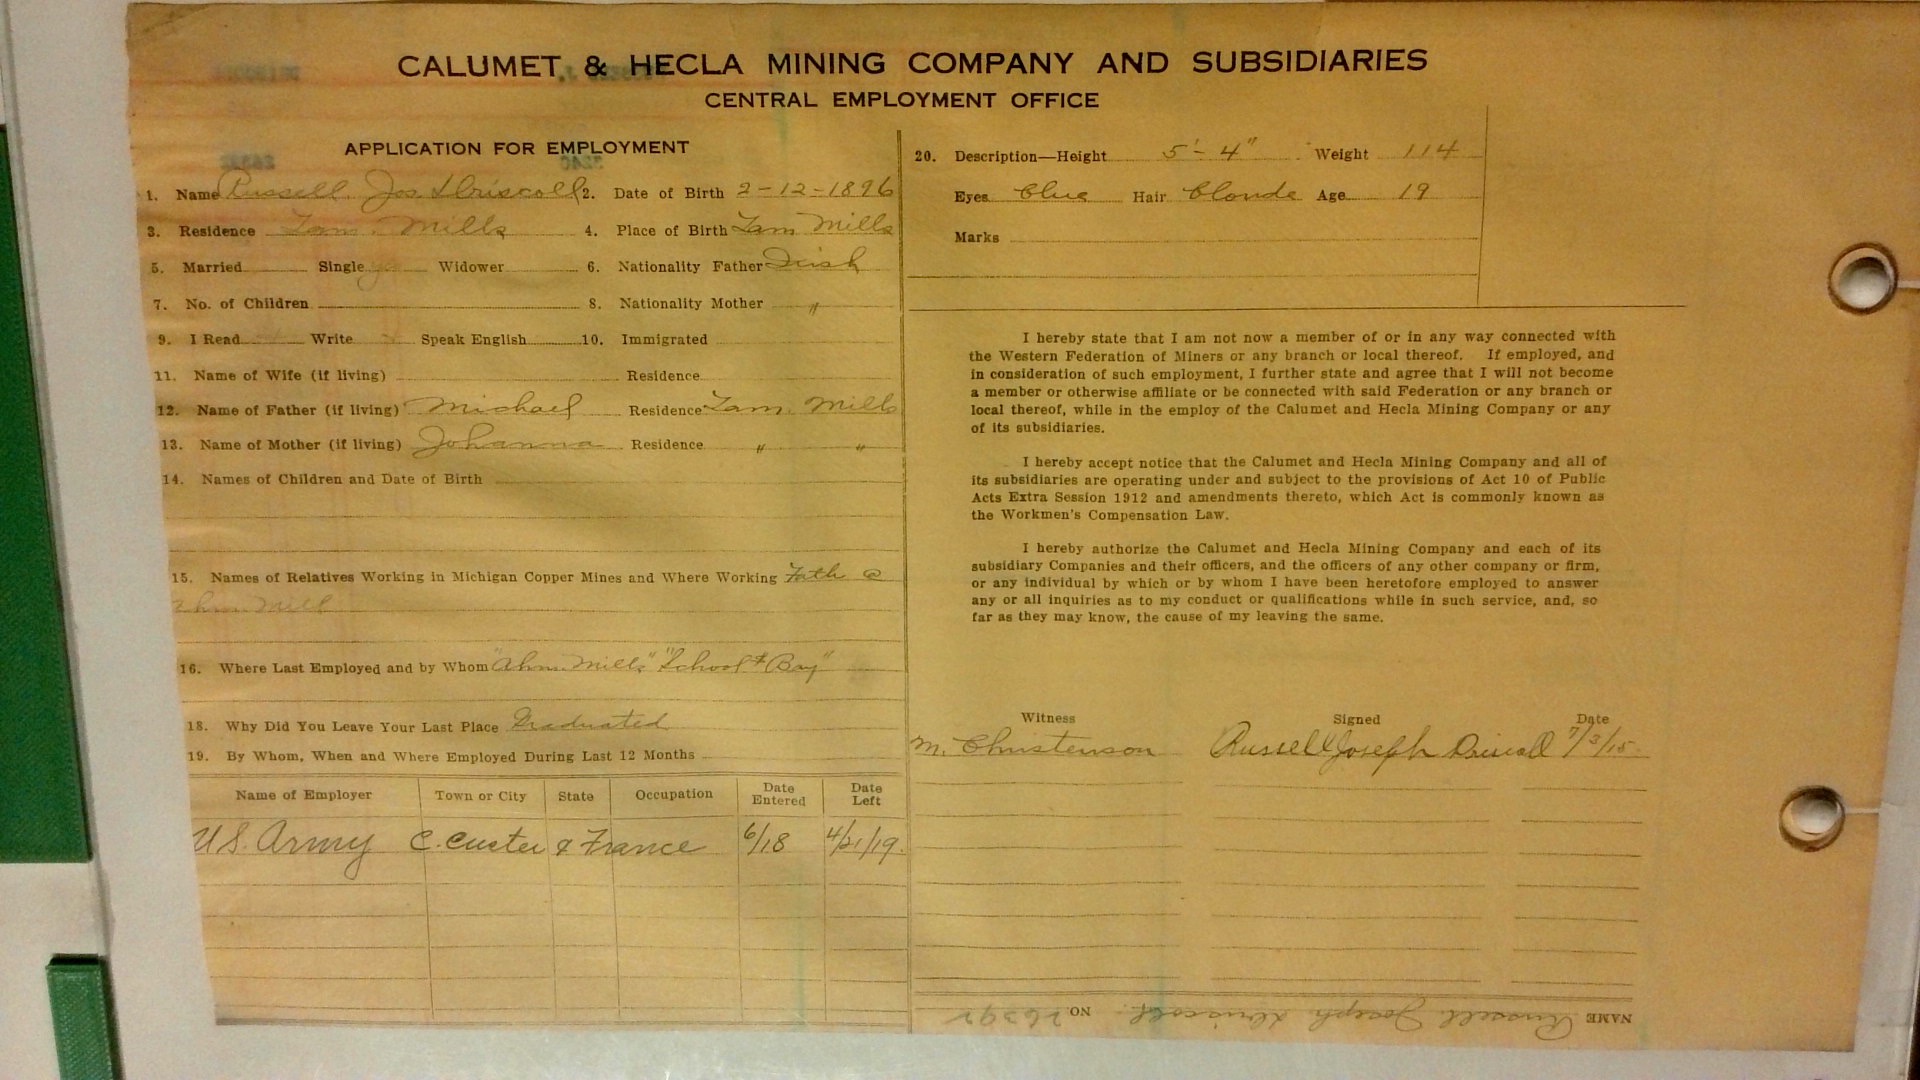 CALUMET & HECLA MINING COMPANY AND SUBSIDIARIES
CENTRAL EMPLOYMENT OFFICE
APPLICATION FOR EMPLOYMENT
1. Name Russell Jos Driscoll 2. Date of Birth 2-12-1896
3. Residence Tam. Mills 4. Place of Birth Tam Mills
5. Married Single Widower 6. Nationality Father Irish
7. No. of Children 8. Nationality Mother "
9. I Read Write Speak English 10. Immigrated
11. Name of Wife (if living) Residence
12. Name of Father (if living) Michael Residence Tam. Mills
13. Name of Mother (if living) Johanna Residence " "
14. Names of Children and Date of Birth
15. Names of Relatives Working in Michigan Copper Mines and Where Working Fath @
Ahm. Mill
16. Where Last Employed and by Whom "Ahm. Mills" "School Boy"
18. Why Did You Leave Your Last Place Graduated
19. By Whom, When and Where Employed During Last 12 Months
Name of Employer Town or City State Occupation Date Entered Date Left
U.S. Army C. Custer & France 6/18 4/21/19.
20. Description—Height 5'-4" Weight 114
Eyes Blue Hair Blonde Age 19
Marks
I hereby state that I am not now a member of or in any way connected with
the Western Federation of Miners or any branch or local thereof. If employed, and
in consideration of such employment, I further state and agree that I will not become
a member or otherwise affiliate or be connected with said Federation or any branch or
local thereof, while in the employ of the Calumet and Hecla Mining Company or any
of its subsidiaries.
I hereby accept notice that the Calumet and Hecla Mining Company and all of
its subsidiaries are operating under and subject to the provisions of Act 10 of Public
Acts Extra Session 1912 and amendments thereto, which Act is commonly known as
the Workmen's Compensation Law.
I hereby authorize the Calumet and Hecla Mining Company and each of its
subsidiary Companies and their officers, and the officers of any other company or firm,
or any individual by which or by whom I have been heretofore employed to answer
any or all inquiries as to my conduct or qualifications while in such service, and, so
far as they may know, the cause of my leaving the same.
Witness Signed Date
M. Christenson Russell Joseph Driscoll 7/3/15.
NAME Russell Joseph Driscoll NO. 26392